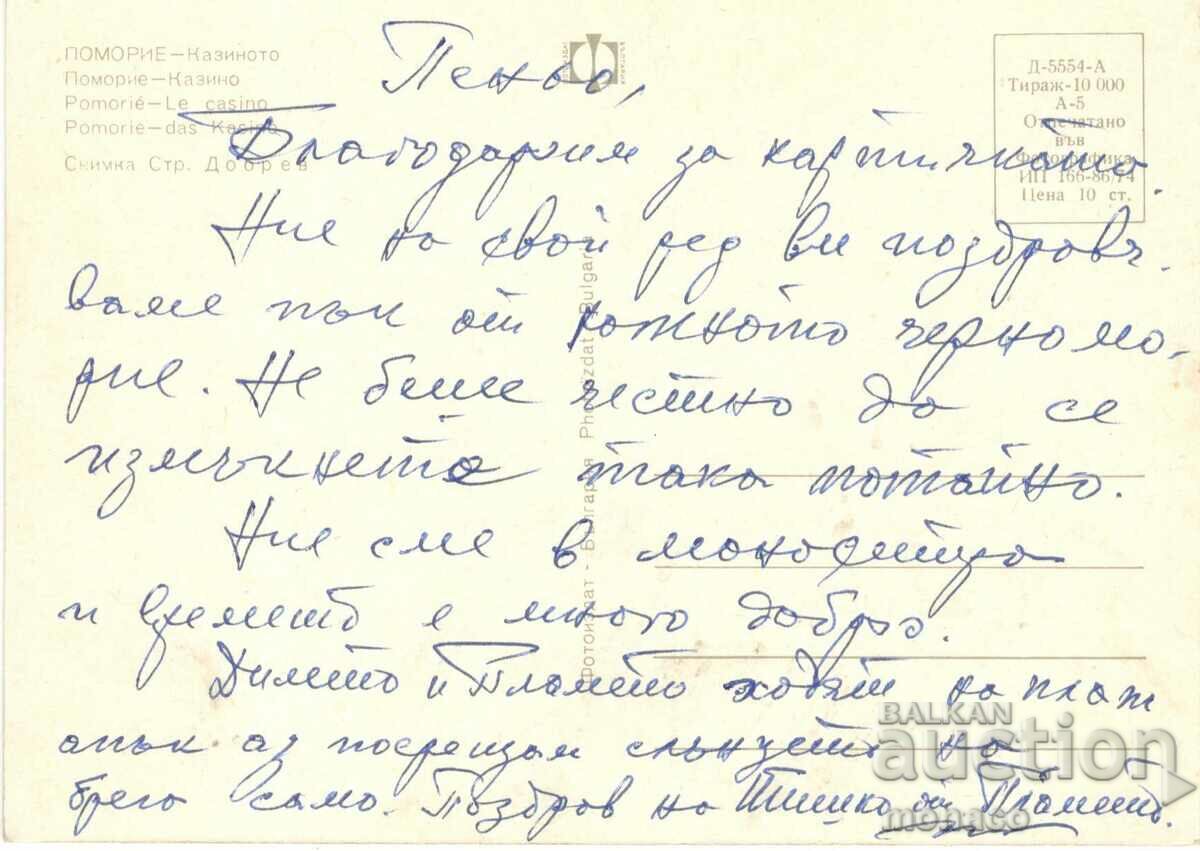 ПОМОРИЕ—Казиното
Поморие—Казино
Pomorié—Le casino
Pomorie—das Kasino
Снимка Стр. Добрев
ФОТОИЗДАТ БЪЛГАРИЯ
Д-5554-А
Тираж-10 000
А-5
Отпечатано
във
Фотографика
ИП 166-86/74
Цена 10 ст.
Фотоиздат - България Photizdat - Bulgaria
Пеньо,
Благодарим за картичката.
Ние на свой ред ви поздравя-
ваме пък от южното черномо-
рие. Не беше честно да се
измъкнете така потайно.
Ние сме в
и времето е много добро.
Димето и Пламето ходят на плаж
апък аз посрещам слънцето на
брега само. Поздрав на от Пламето.
BALKAN
auction
monaco